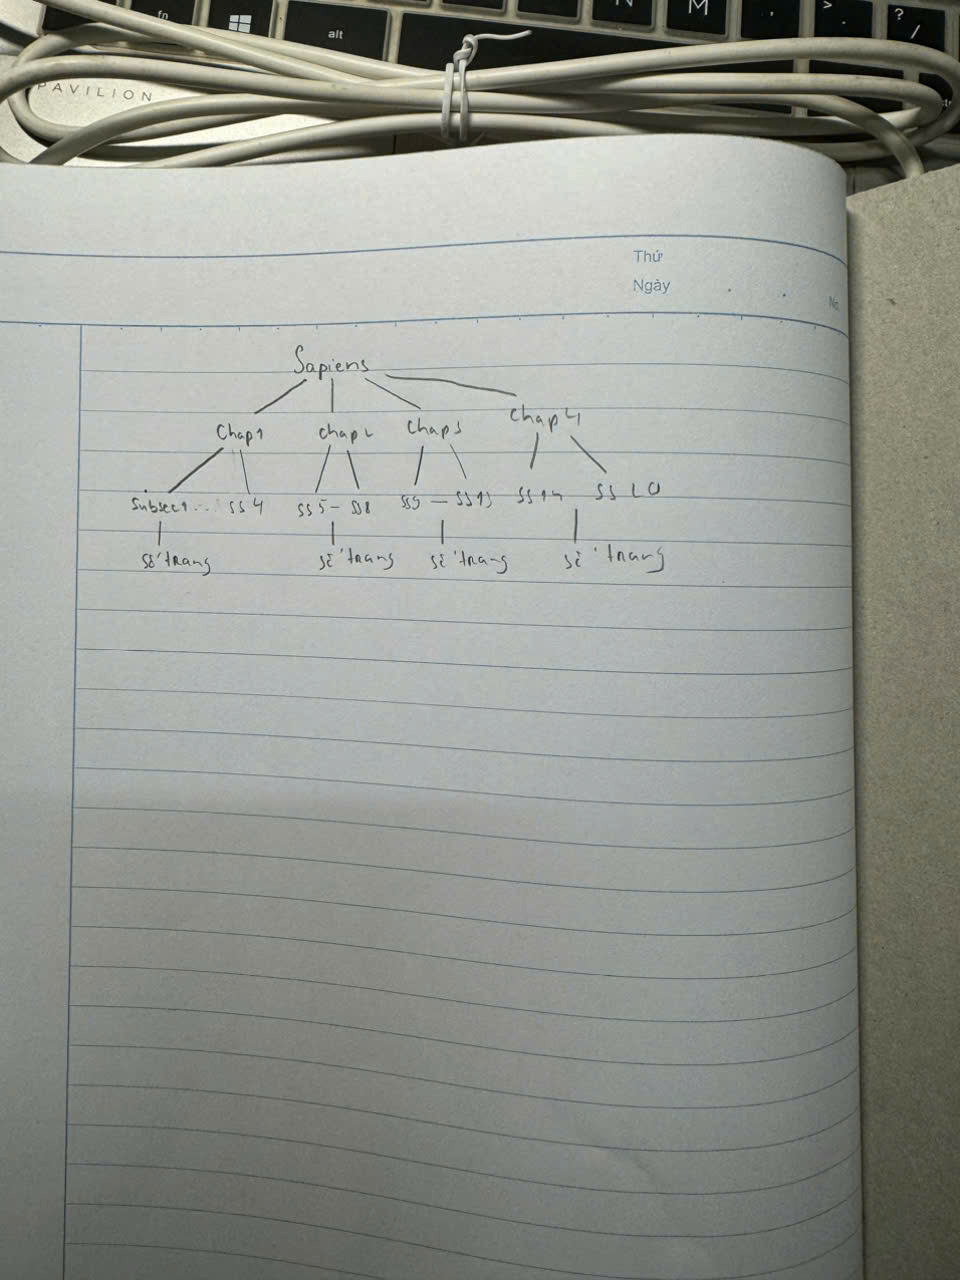 fn
alt
N M , > . ? /
PAVILION
Thứ
Ngày . .
No
Sapiens
Chap1 chap2 Chap3 Chap4
Subsec1... SS4 SS5 - SS8 SS9 — SS13 SS14 SS20
số trang số trang số trang số trang